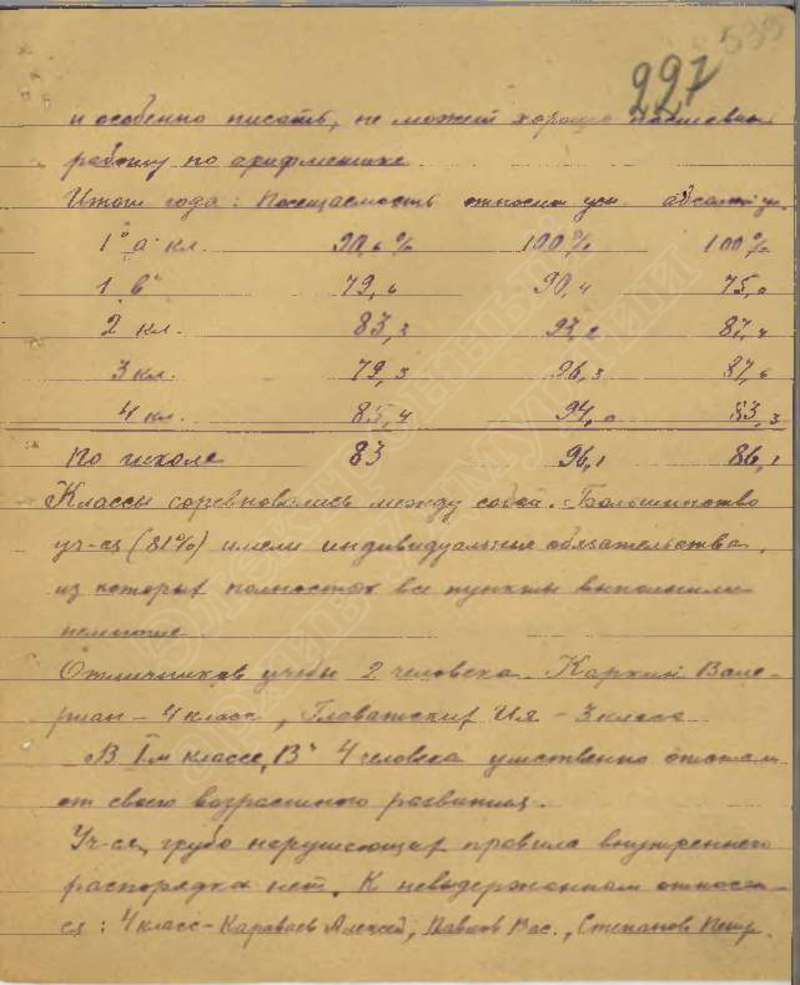 227
и особенно писать, не может хорошо
работу по арифметике
Итоги года: Посещаемость относит. усп. абсолют. усп.
1 "а" кл. 90,6% 100% 100%
1 "в" 79,6 90,4 75,0
2 кл. 83,3 93,2 87,4
3 кл. 79,3 96,3 87,6
4 кл. 85,4 94,0 83,3
По школе 83 96,1 86,1
Классы соревновались между собой. Большинство
уч-ся (81%) имели индивидуальные обязательства,
из которых полностью все пункты выполнили
немногие
Отличников учебы 2 человека. Каркин Вале-
риан – 4 класс, Главатских Ия – 3 класс
В Iм классе "В" 4 человека умственно отстали
от своего возрастного развития.
Уч-ся, грубо нарушающих правила внутреннего
распорядка нет. К невыдержанным относят-
ся: 4 класс – Караваев Алексей, Павлов Вас., Степанов Петр.